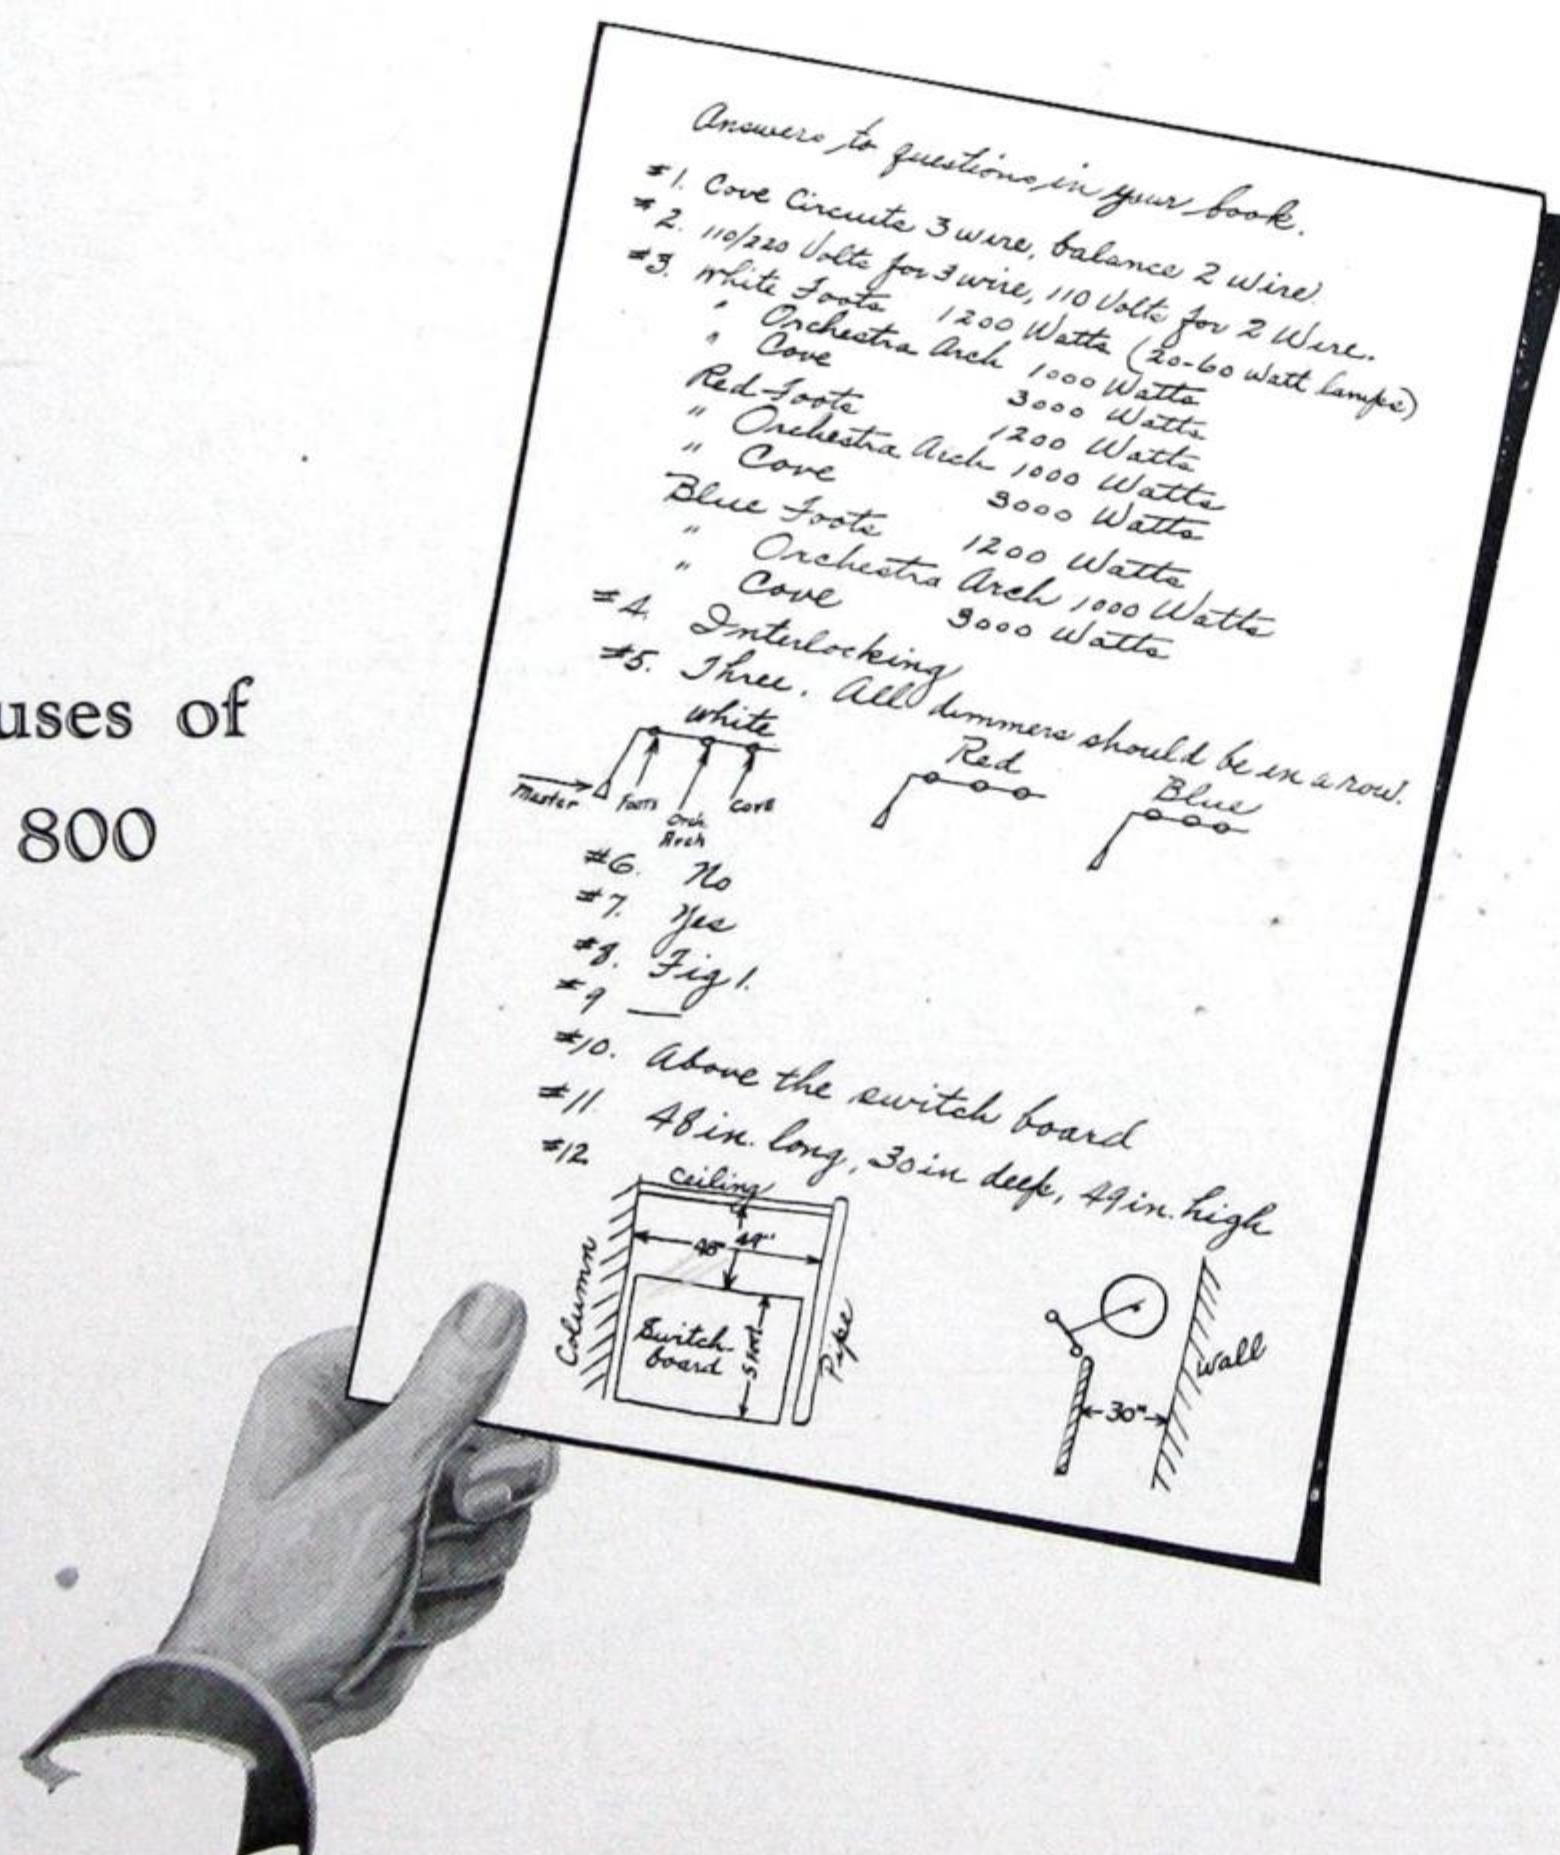 uses of
800
Answers to questions in your book.
#1. Cove Circuits 3 wire, balance 2 wire.
#2. 110/220 Volts for 3 wire, 110 Volts for 2 Wire.
#3. White Foots 1200 Watts (20-60 watt lamps)
" Orchestra Arch 1000 Watts
" Cove 3000 Watts
Red Foots 1200 Watts
" Orchestra Arch 1000 Watts
" Cove 3000 Watts
Blue Foots 1200 Watts
" Orchestra Arch 1000 Watts
" Cove 3000 Watts
#4. Interlocking
#5. Three. All dimmers should be in a row.
White Red Blue
Master Foots Orch Arch Cove
#6. No
#7. Yes
#8. Fig 1.
#9 —
#10. Above the switch board
#11. 48 in. long, 30 in deep, 49 in. high
#12.
Ceiling
Column
48" 49"
Switch-
board
5 foot
Pipe
30"
Wall